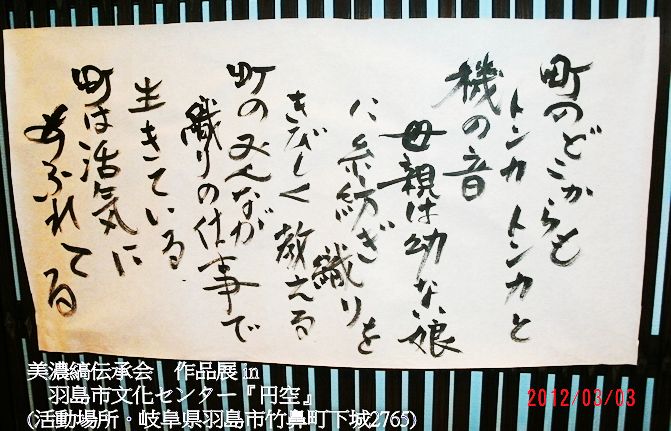 町のどこからも
トンカ トンカと
機の音
母親は幼ない娘
に糸紡ぎ織りを
きびしく教える
町のみんなが
織りの仕事で
生きている
町は活気に
あふれてる
美濃縞伝承会 作品展 in
羽島市文化センター『円空』
(活動場所・岐阜県羽島市竹鼻町下城2765)
2012/03/03